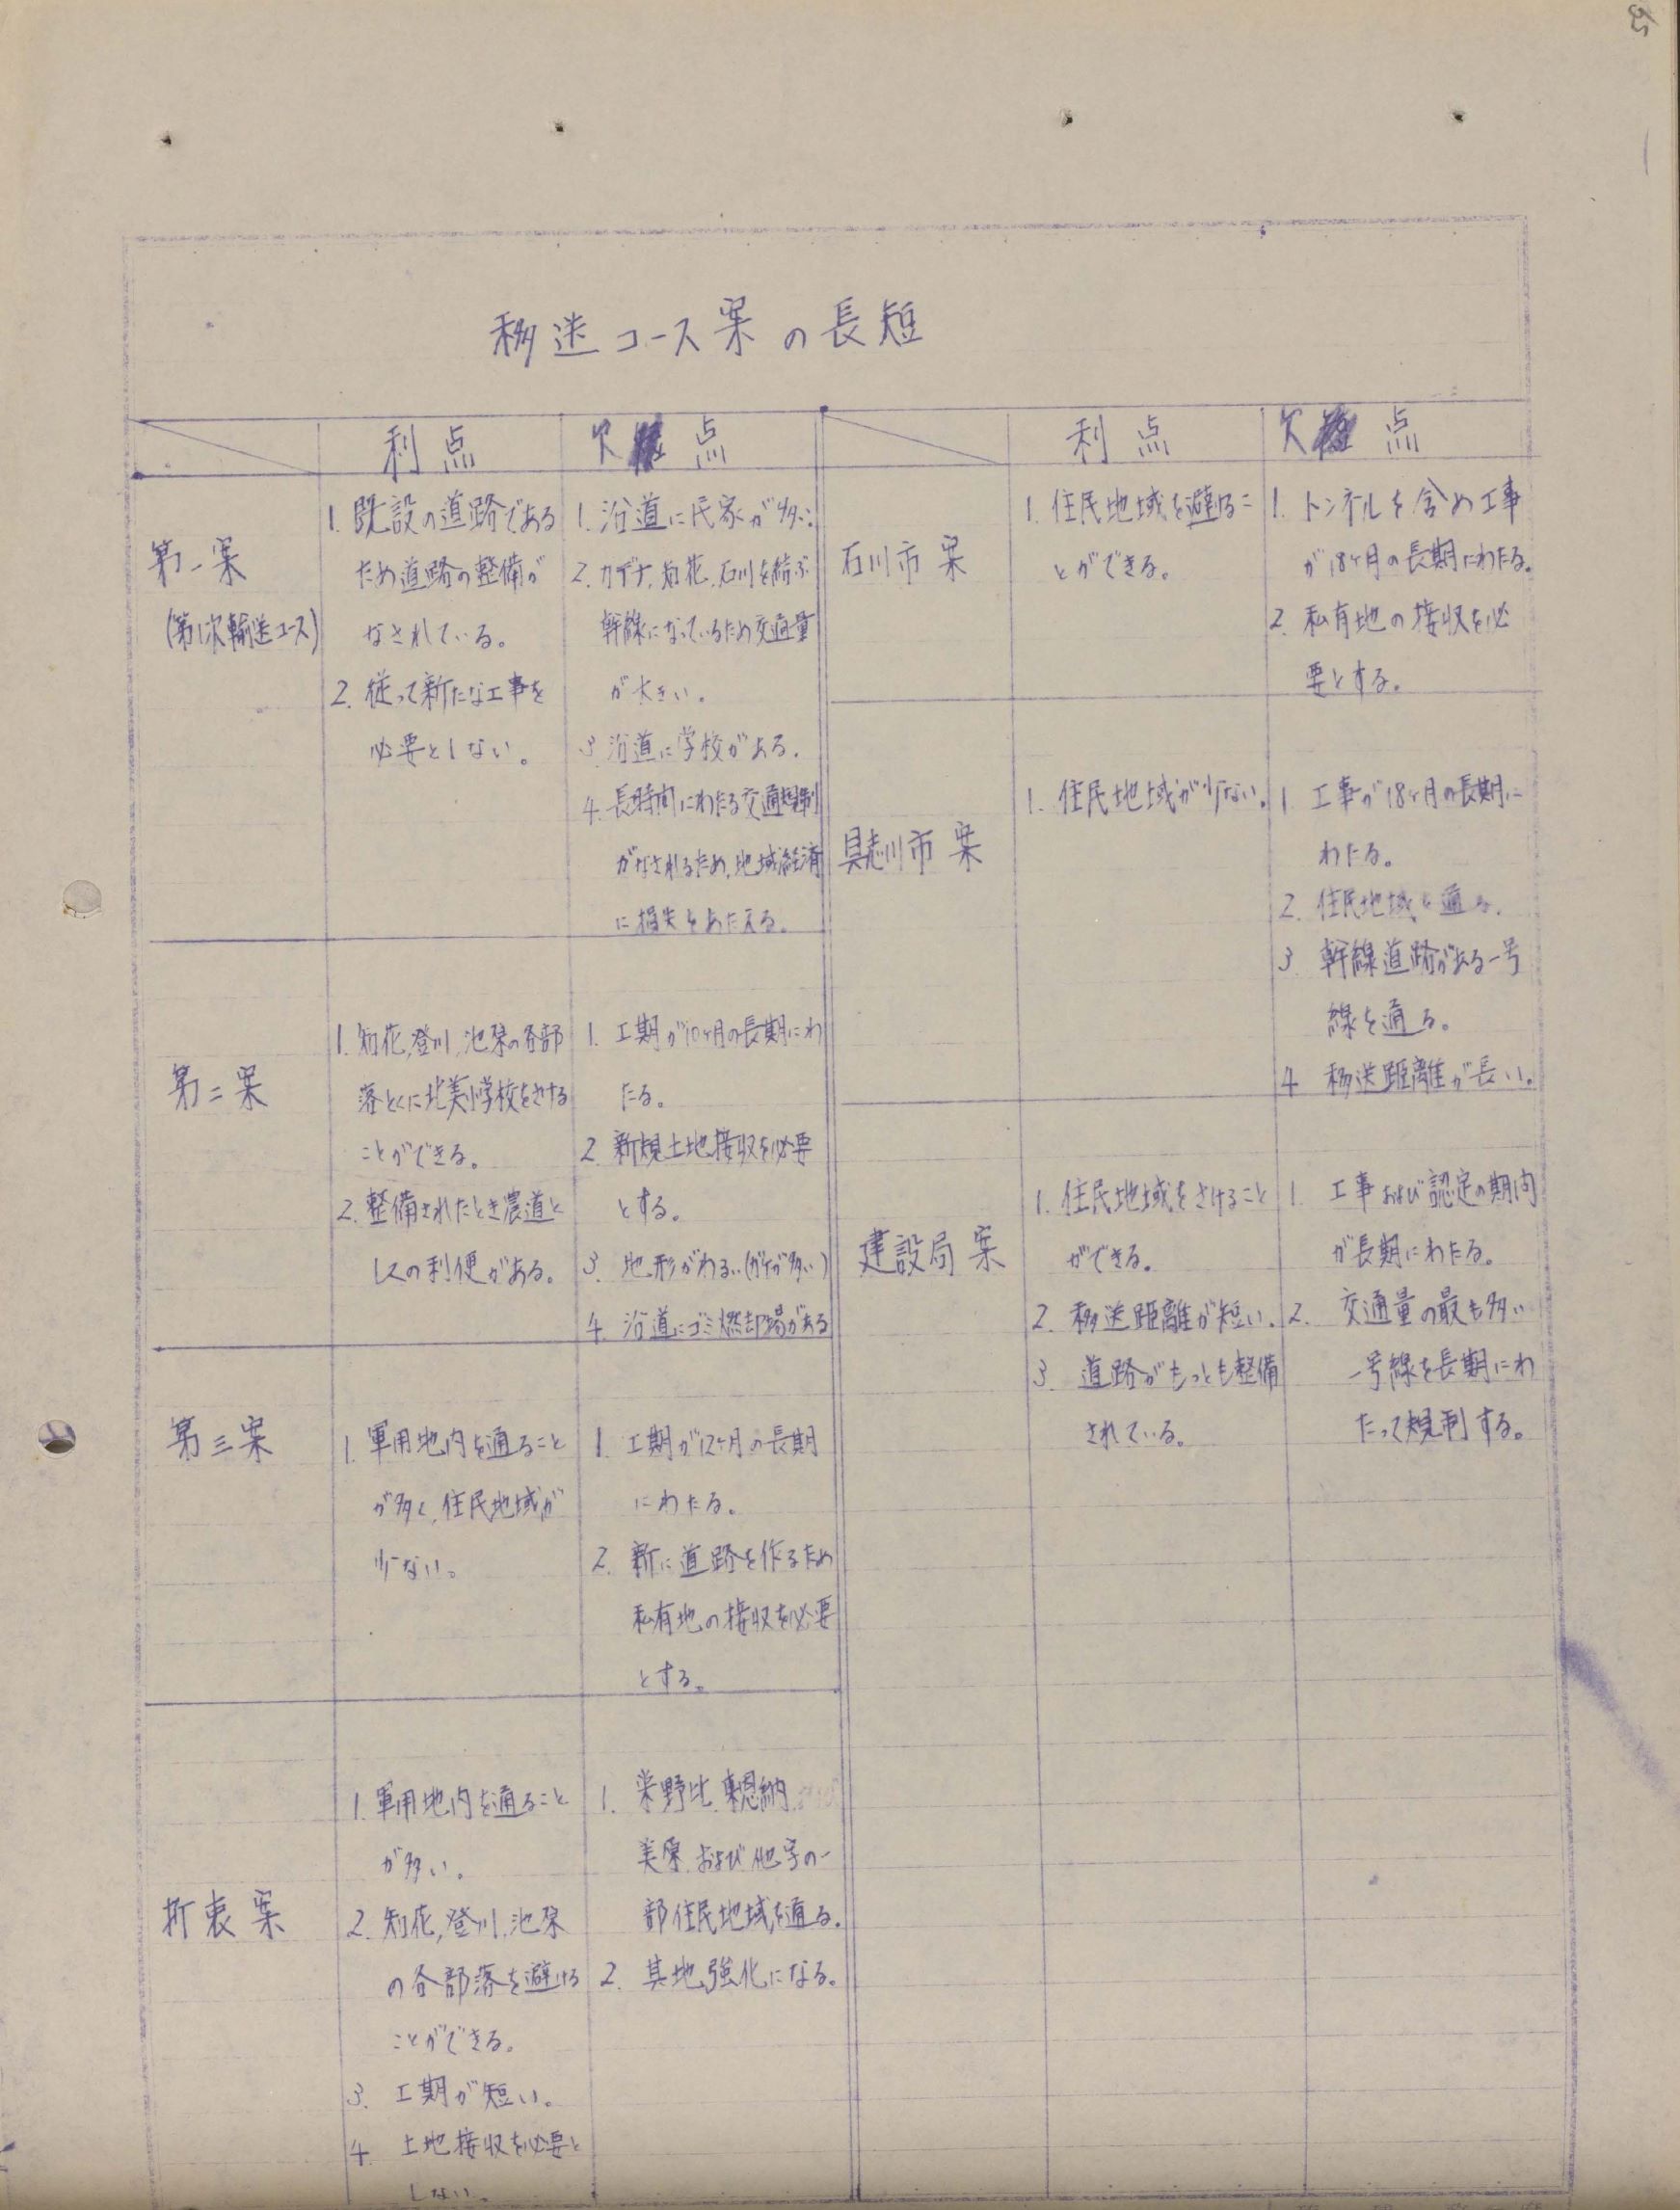 移送コース案の長短
利点
欠点
第一案
(第1次輸送コース)
1. 既設の道路である
ため道路の整備が
なされている。
2. 従って新たな工事を
必要としない。
1. 沿道に民家が多い
2. カデナ、知花、石川を結ぶ
幹線になっているため交通量
が大きい。
3. 沿道に学校がある。
4. 長時間にわたる交通規制
がなされるため、地域経済
に損失をあたえる。
第二案
1. 知花,登川,池原の各部
落とくに北美小学校をさける
ことができる。
2. 整備されたとき農道と
しての利便がある。
1. 工期が10ヶ月の長期にわ
たる。
2. 新規土地接収を必要
とする。
3. 地形がわるい(ガケが多い)
4. 沿道にゴミ燃却場がある
第三案
1. 軍用地内を通ること
が多く、住民地域が
少ない。
1. 工期が12ヶ月の長期
にわたる。
2. 新に道路を作るため
私有地の接収を必要
とする。
折衷案
1. 軍用地内を通ること
が多い。
2. 知花,登川,池原
の各部落を避ける
ことができる。
3. 工期が短い。
4. 土地接収を必要と
しない。
1. 栄野比、東恩納
美原および他字の一
部住民地域を通る。
2. 基地強化になる。
利点
欠点
石川市案
1. 住民地域を避けるこ
とができる。
1. トンネルを含め工事
が18ヶ月の長期にわたる。
2. 私有地の接収を必
要とする。
具志川市案
1. 住民地域が少ない。
1. 工事が18ヶ月の長期に
わたる。
2. 住民地域を通る。
3. 幹線道路がある一号
線を通る。
4. 移送距離が長い。
建設局案
1. 住民地域をさけること
ができる。
2. 移送距離が短い。
3. 道路がもっとも整備
されている。
1. 工事および認定の期内
が長期にわたる。
2. 交通量の最も多い
一号線を長期にわ
たって規制する。